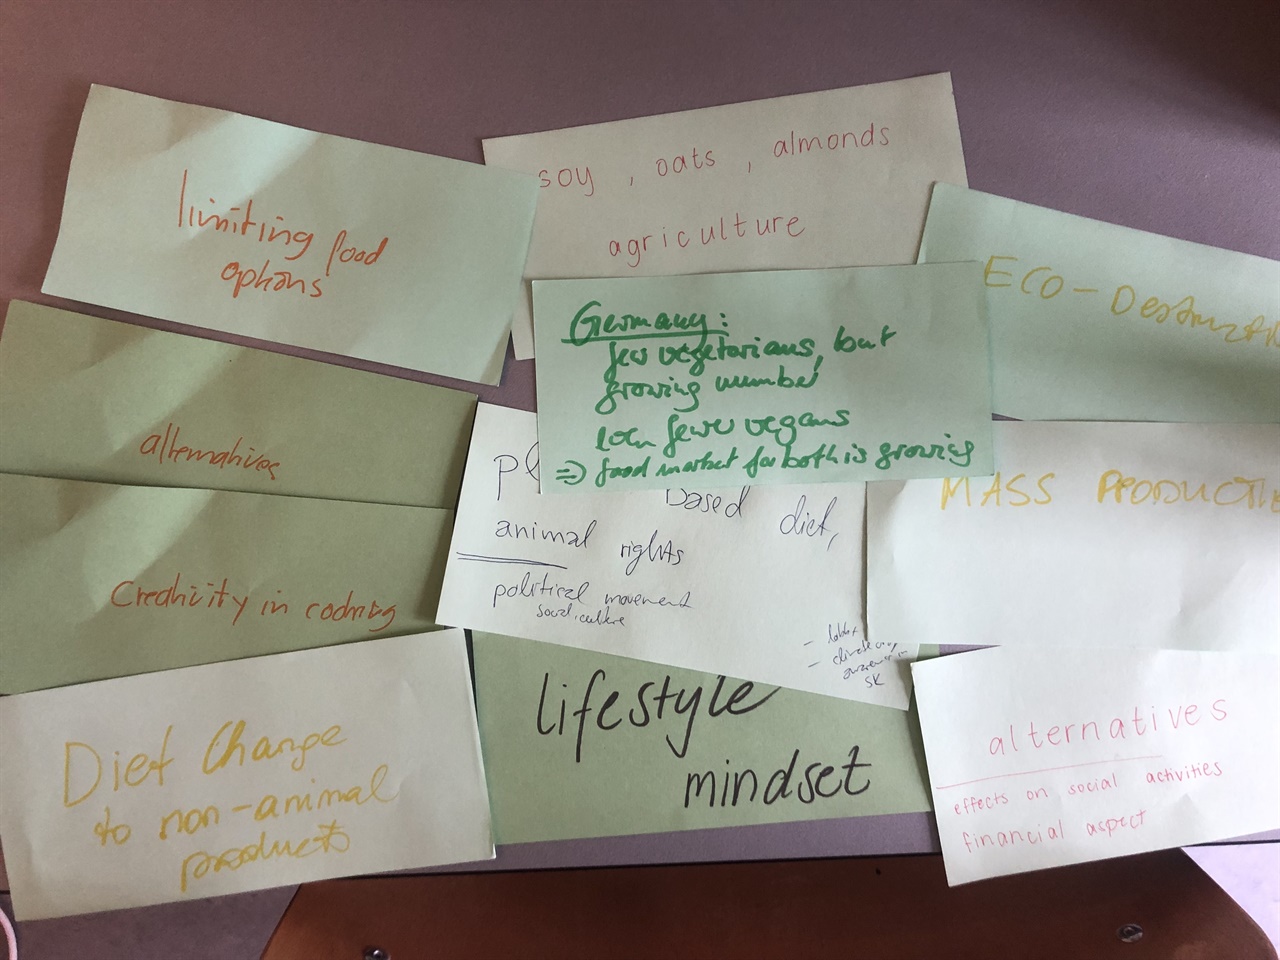 limiting food
options
soy , oats , almonds
agriculture
ECO-Destructi
Germany:
few vegetarians, but
growing number
even fewer vegans
=> food market for both is growing
alternatives
Creativity in cooking
pl
based diet,
animal rights
political movement
social, culture
- 
- climate
awareness in
SK
MASS PRODUCTIO
Diet Change
to non-animal
products
lifestyle
mindset
alternatives
effects on social activities
financial aspect